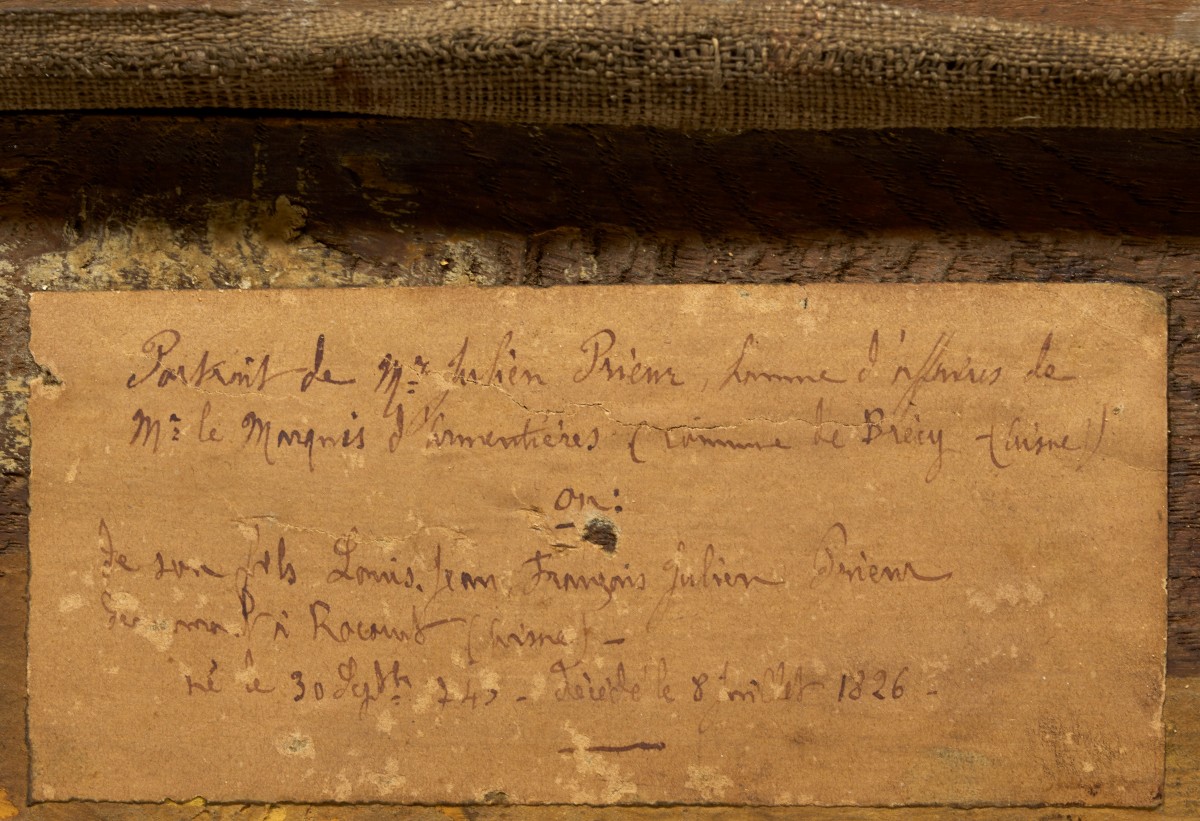 Portrait de Mr Julien Prieur, homme d'affaires de
Mr le Marquis d'Armentières (commune de Brécy - (Aisne))
ou:
de son fils Louis. Jean, François Julien Prieur
à Rocourt (Aisne) -
né le 30 Septbre - Décédé le 8 juillet 1826 -